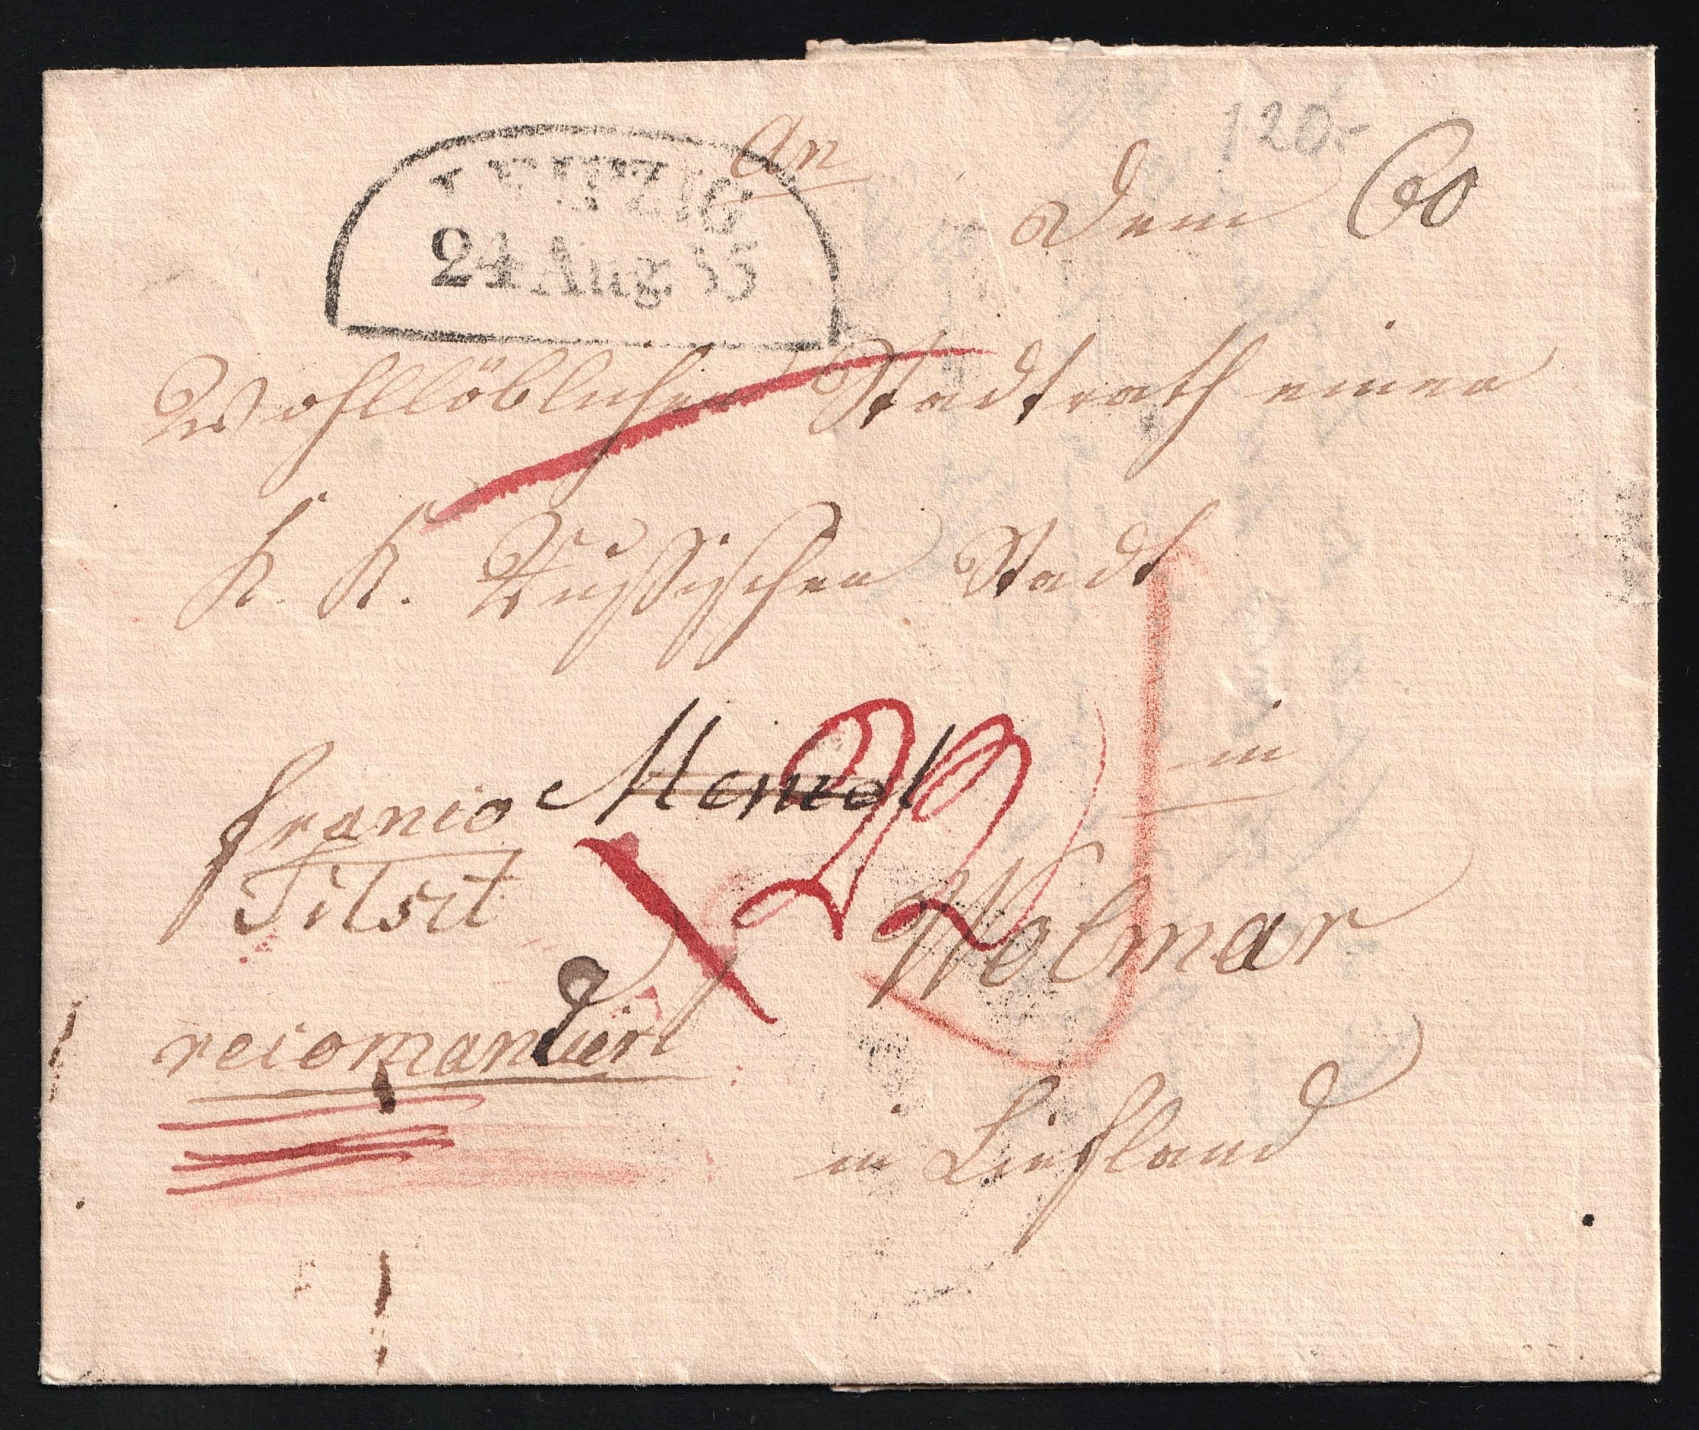 120.-
An
Dem
60
LEIPZIG
24 Aug. 35
Wohllöblichen Stadtrath einer
K. K. Russischen Stadt
in
franco Memel
Tilsit
Wolmar
recomandirt
in Liefland